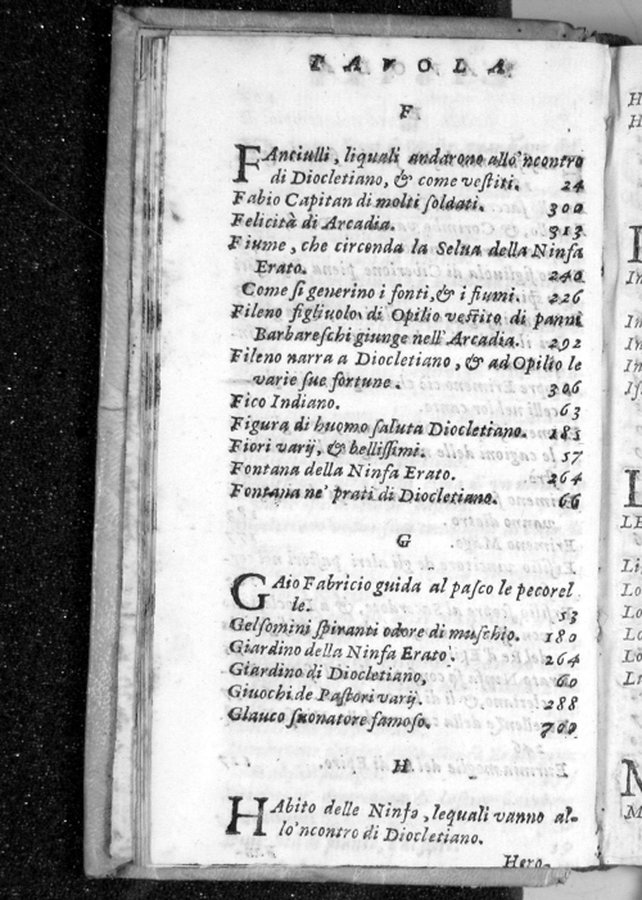 TAVOLA
F
FAnciulli, liquali andarono allo'ncontro
di Diocletiano, & come veſtiti. 24
Fabio Capitan di molti ſoldati. 300
Felicità di Arcadia. 313
Fiume, che circonda la Selua della Ninfa
Erato. 240
Come ſi generino i fonti, & i fiumi. 226
Fileno figliuolo di Opilio veſtito di panni
Barbareſchi giunge nell'Arcadia. 292
Fileno narra a Diocletiano, & ad Opilio le
varie ſue fortune. 306
Fico Indiano. 63
Figura di huomo ſaluta Diocletiano. 181
Fiori varij, & belliſſimi. 57
Fontana della Ninfa Erato. 264
Fontana ne' prati di Diocletiano. 66
G
GAio Fabricio guida al paſco le pecorel
le. 53
Gelſomini ſpiranti odore di muſchio. 180
Giardino della Ninfa Erato. 264
Giardino di Diocletiano, 60
Giuochi de Paſtori varij. 288
Glauco ſuonatore famoſo. 700
H
HAbito delle Ninfe, lequali vanno al-
lo'ncontro di Diocletiano.
Hero-